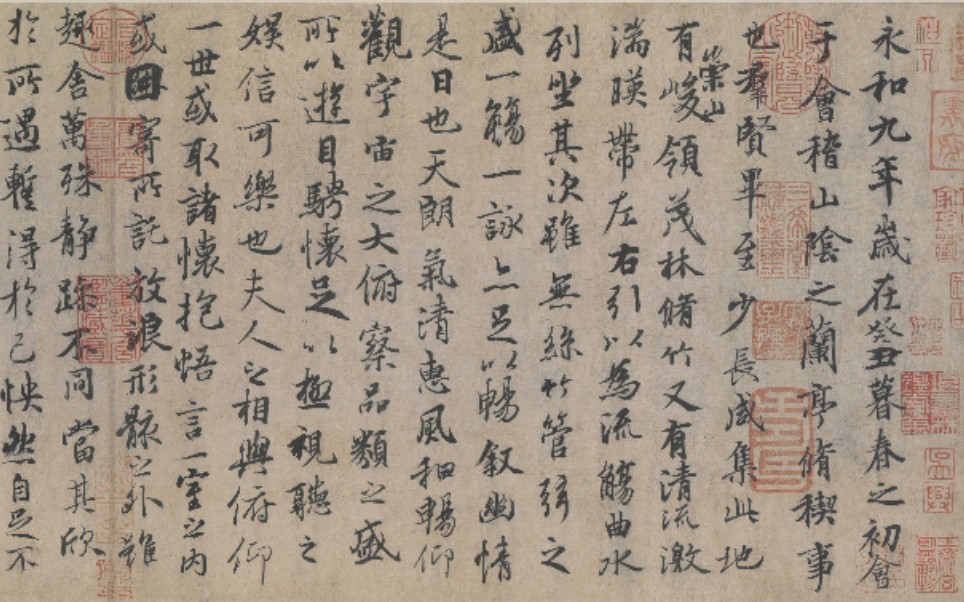 永和九年歲在癸丑暮春之初會
于會稽山陰之蘭亭脩禊事
也羣賢畢至少長咸集此地
有崇山峻領茂林脩竹又有清流激
湍暎帶左右引以為流觴曲水
列坐其次雖無絲竹管弦之
盛一觴一詠亦足以暢敘幽情
是日也天朗氣清惠風和暢仰
觀宇宙之大俯察品類之盛
所以遊目騁懷足以極視聽之
娛信可樂也夫人之相與俯仰
一世或取諸懷抱悟言一室之內
或因寄所託放浪形骸之外雖
趣舍萬殊靜躁不同當其欣
於所遇暫得於己怏然自足不